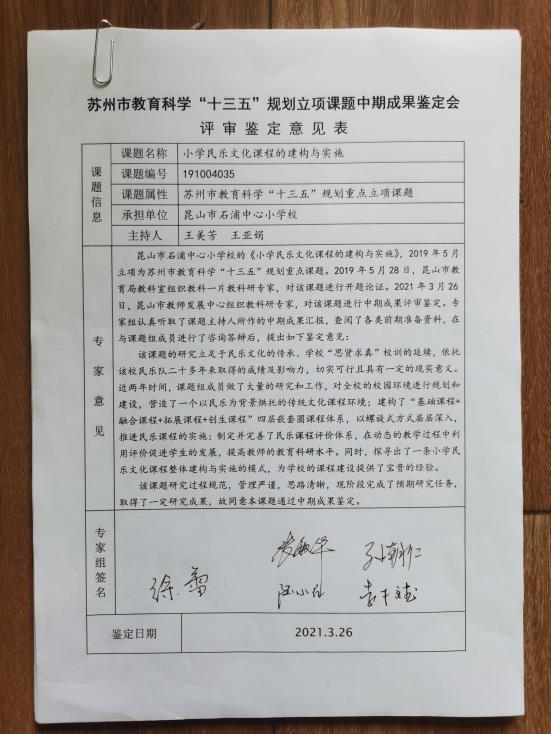 苏州市教育科学“十三五”规划立项课题中期成果鉴定会
评审鉴定意见表
课题信息
课题名称 小学民乐文化课程的建构与实施
课题编号 191004035
课题属性 苏州市教育科学“十三五”规划重点立项课题
承担单位 昆山市石浦中心小学校
主持人 王美芳 王亚娟
专家意见
昆山市石浦中心小学校的《小学民乐文化课程的建构与实施》，2019年5月
立项为苏州市教育科学“十三五”规划重点课题。2019年5月28日，昆山市教
育局教科室组织教科一片教科研专家，对该课题进行开题论证。2021年3月26
日，昆山市教师发展中心组织教科研专家，对该课题进行中期成果评审鉴定。专
家组认真听取了课题主持人所作的中期成果汇报，查阅了各类前期准备资料，在
与课题组成员进行了咨询答辩后，提出如下鉴定意见：
该课题的研究立足于民乐文化的传承、学校“思贤求真”校训的延续，依托
该校民乐队二十多年来取得的成绩及影响力，切实可行且具有一定的现实意义。
近两年时间，课题组成员做了大量的研究和工作，对全校的校园环境进行规划和
建设，营造了一个以民乐为背景烘托的传统文化课程环境；建构了“基础课程+
融合课程+拓展课程+创生课程”四层嵌套圆课程体系，以螺旋式方式层层深入，
推进民乐课程的实施；制定并完善了民乐课程评价体系，在动态的教学过程中利
用评价促进学生的发展，提高教师的教育科研水平。同时，探寻出了一条小学民
乐文化课程整体建构与实施的模式，为学校的课程建设提供了宝贵的经验。
该课题研究过程规范，管理严谨，思路清晰，现阶段完成了预期研究任务，
取得了一定研究成果，故同意本课题通过中期成果鉴定。
专家组签名
徐蕾
鉴定日期 2021.3.26